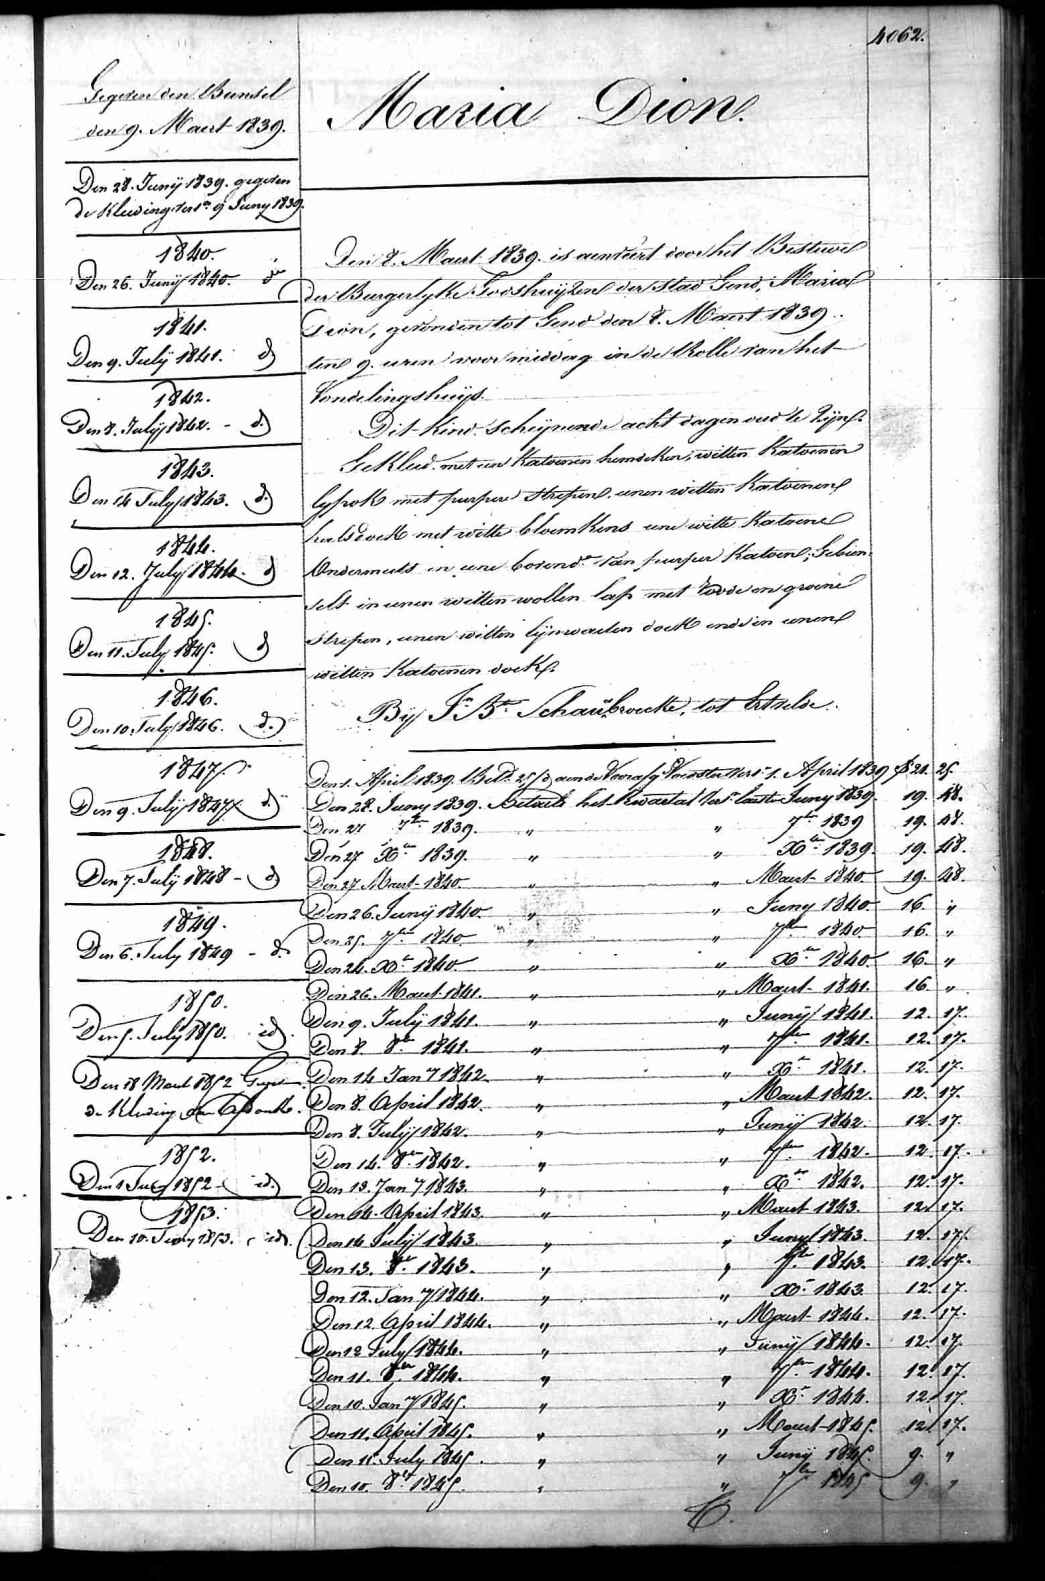 4062.
Gegeven den Bunsel
den 9. Maert 1839.
Den 28. Junij 1839. gegeven
de Kleeding 9 Juny 1839.
1840.
Den 26. Junij 1840. do
1841.
Den 9. July 1841. d
1842.
Den 8. July 1842. - d
1843.
Den 14 July 1843. d.
1844.
Den 12. July 1844. d
1845.
Den 11. July 1845. d
1846.
Den 10. July 1846. d.
1847.
Den 9. July 1847 d
1848.
Den 7. July 1848 - d
1849.
Den 6. July 1849 - d
1850.
Den 5. July 1850. id.
Den 18 Maert 1852 Gegeven
de Kleeding
1852.
Den 1 July 1852 - id.
1853.
Den 10. Juny 1853. id.
Maria Dion.
Den 8. Maert 1839. is aenveért door het Bestuer
der Burgerlyke Godshuijzen der stad Gend, Maria
Dion, gevonden tot Gend den 8. Maert 1839.
ten 9. uren voormiddag in de Rolle van het
Vondelingshuijs.
Dit Kind scheijnende acht dagen oud te zijn.
Gekleed met een Katoenen hemdeken, witten Katoenen
lyfrok met purpere strepen, eenen witten Katoenen
halsdoek met witte bloemkens eene witte Katoene
Ondermuts en eene bovende van purper Katoen; Gebun-
selt in eenen witten wollen lap met roode en groene
strepen, eenen witten lijnwaeden doek ende in eenen
witten Katoenen doek.
Bij J. Bte Schaubroecke, tot Ertvelde.
Den 1. April 1839. 1. April 1839 f 21. 25.
Den 28. Juny 1839. Betaelt het Kwartael laeste Juny 1839. 19. 48.
Den 27 7ber 1839. " " 7ber 1839 19. 48.
Den 27 Xber 1839. " " Xber 1839. 19. 48.
Den 27 Maert 1840 " " Maert 1840 19. 48.
Den 26. Junij 1840. " " Juny 1840. 16. "
Den 25. 7ber 1840 " " 7ber 1840 16. "
Den 24. Xber 1840 " " Xber 1840. 16. "
Den 26. Maert 1841. " " Maert 1841. 16 "
Den 9. July 1841. " " Junij 1841. 12. 17.
Den 8. 8ber 1841. " " 7ber 1841. 12. 17.
Den 14 Jan 1842. " " Xber 1841 12. 17.
Den 8. April 1842. " " Maert 1842. 12. 17.
Den 8. Julij 1842. " " Junij 1842. 12. 17.
Den 14. 8ber 1842. " " 7ber 1842. 12. 17.
Den 13. Jan 1843. " " Xber 1842. 12. 17.
Den 14. April 1843. " " Maert 1843. 12. 17.
Den 14 July 1843. " " Juny 1843. 12. 17.
Den 13. 8ber 1843. " " 7ber 1843. 12. 17.
Den 12. Jan 1844. " " Xber 1843. 12. 17.
Den 12 April 1844. " " Maert 1844. 12. 17.
Den 12 July 1844. " " Junij 1844. 12. 17.
Den 11. 8ber 1844. " " 7ber 1844. 12. 17.
Den 10. Jan 1845. " " Xber 1844 12. 17.
Den 11. April 1845. " " Maert 1845. 12. 17.
Den 11. July 1845. " " Junij 1845. 9. "
Den 10. 8ber 1845. " " 7ber 1845 9. "